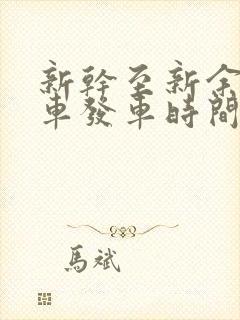 新幹至新余
車發車時間
馬斌